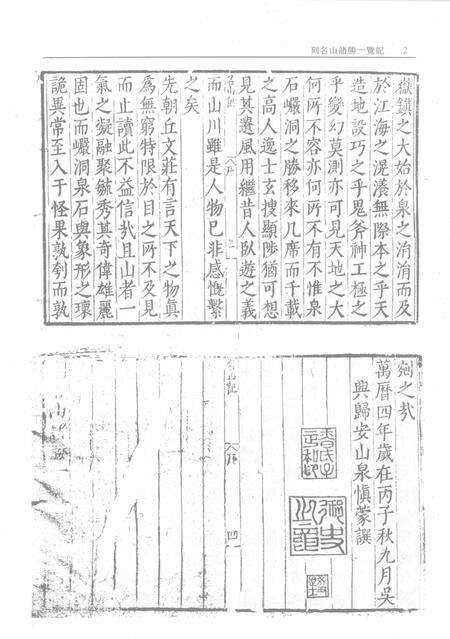 刻名山諸勝一覽記 2
嶽鎮之大始於泉之涓涓而及
於江海之混瀁無際本之乎天
造地設巧之乎鬼斧神工極之
乎變幻莫測亦可見天地之大
何所不容亦何所不有不惟泉
石巖洞之勝移來几席而千載
之高人逸士玄搜顯陟猶可想
見其遺風用繼昔人臥遊之義
而山川雖是人物已非感慨繫
之矣
先朝丘文莊有言天下之物真
為無窮特限於目之所不及見
而止讀此不益信哉且山者一
氣之凝融聚毓秀其奇偉雄麗
固也而巖洞泉石與象形之瓌
詭異常至入于怪果孰刳而孰
剜之哉
萬曆四年歲在丙子秋九月吳
興歸安山泉慎蒙譔
山記
四